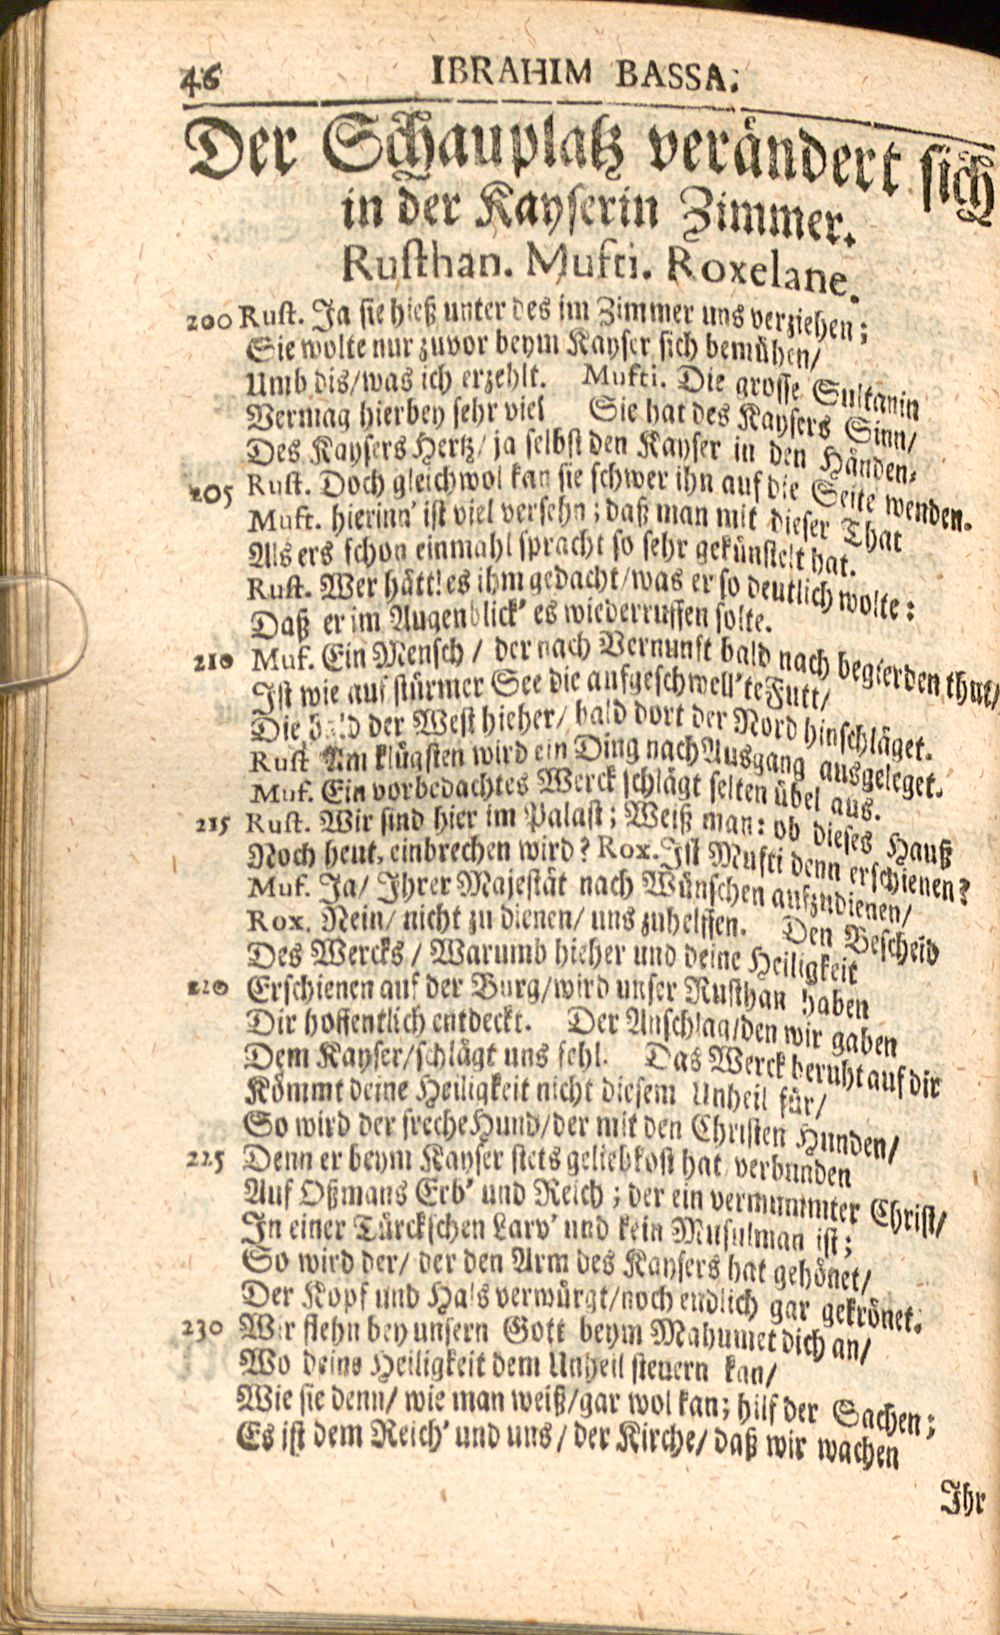 46 IBRAHIM BASSA.
Der Schauplatz verändert sich
in der Kayserin Zimmer.
Rusthan. Mufti. Roxelane.
200 Rust. Ja sie hieß unter des im Zimmer uns verziehen;
Sie wolte nur zuvor beym Kayser sich bemühen/
Umb dis/was ich erzehlt. Mufti. Die grosse Sultanin
Vermag hierbey sehr viel Sie hat des Kaysers Sinn/
Des Kaysers Hertz/ ja selbst den Kayser in den Händen.
205 Rust. Doch gleichwol kan sie schwer ihn auf die Seite wenden.
Muft. hierinn' ist viel versehn; daß man mit dieser That
Als ers schon einmahl spracht so sehr gekünstelt hat.
Rust. Wer hätt' es ihm gedacht/was er so deutlich wolte:
Daß er im Augenblick' es wiederruffen solte.
210 Muf. Ein Mensch / der nach Vernunft bald nach begierden thut/
Ist wie auf stürmer See die aufgeschwell'te Flutt/
Die bald der West hieher/ bald dort der Nord hinschläget.
Rust Am klügsten wird ein Ding nach Ausgang ausgeleget.
Muf. Ein vorbedachtes Werck schlägt selten übel aus.
215 Rust. Wir sind hier im Palast; Weiß man: ob dieses Hauß
Noch heut, einbrechen wird? Rox. Ist Mufti denn erschienen?
Muf. Ja/ Ihrer Majestät nach Wünschen aufzudienen/
Rox. Nein/ nicht zu dienen/ uns zuhelffen. Den Bescheid
Des Wercks / Warumb hieher und deine Heiligkeit
220 Erschienen auf der Burg/wird unser Rusthan haben
Dir hoffentlich entdeckt. Der Anschlag/den wir gaben
Dem Kayser/schlägt uns fehl. Das Werck beruht auf dir
Kömmt deine Heiligkeit nicht diesem Unheil für/
So wird der freche Hund/der mit den Christen Hunden/
225 Denn er beym Kayser stets geliebkost hat/ verbunden
Auf Oßmans Erb' und Reich; der ein vermummter Christ/
In einer Türckschen Larv' und kein Musulman ist;
So wird der/ der den Arm des Kaysers hat gehönet/
Der Kopf und Hals verwürgt/noch endlich gar gekrönet.
230 Wir flehn bey unsern Gott beym Mahumet dich an/
Wo deine Heiligkeit dem Unheil steuern kan/
Wie sie denn/ wie man weiß/gar wol kan; hilf der Sachen;
Es ist dem Reich' und uns/ der Kirche/ daß wir wachen
Ihr